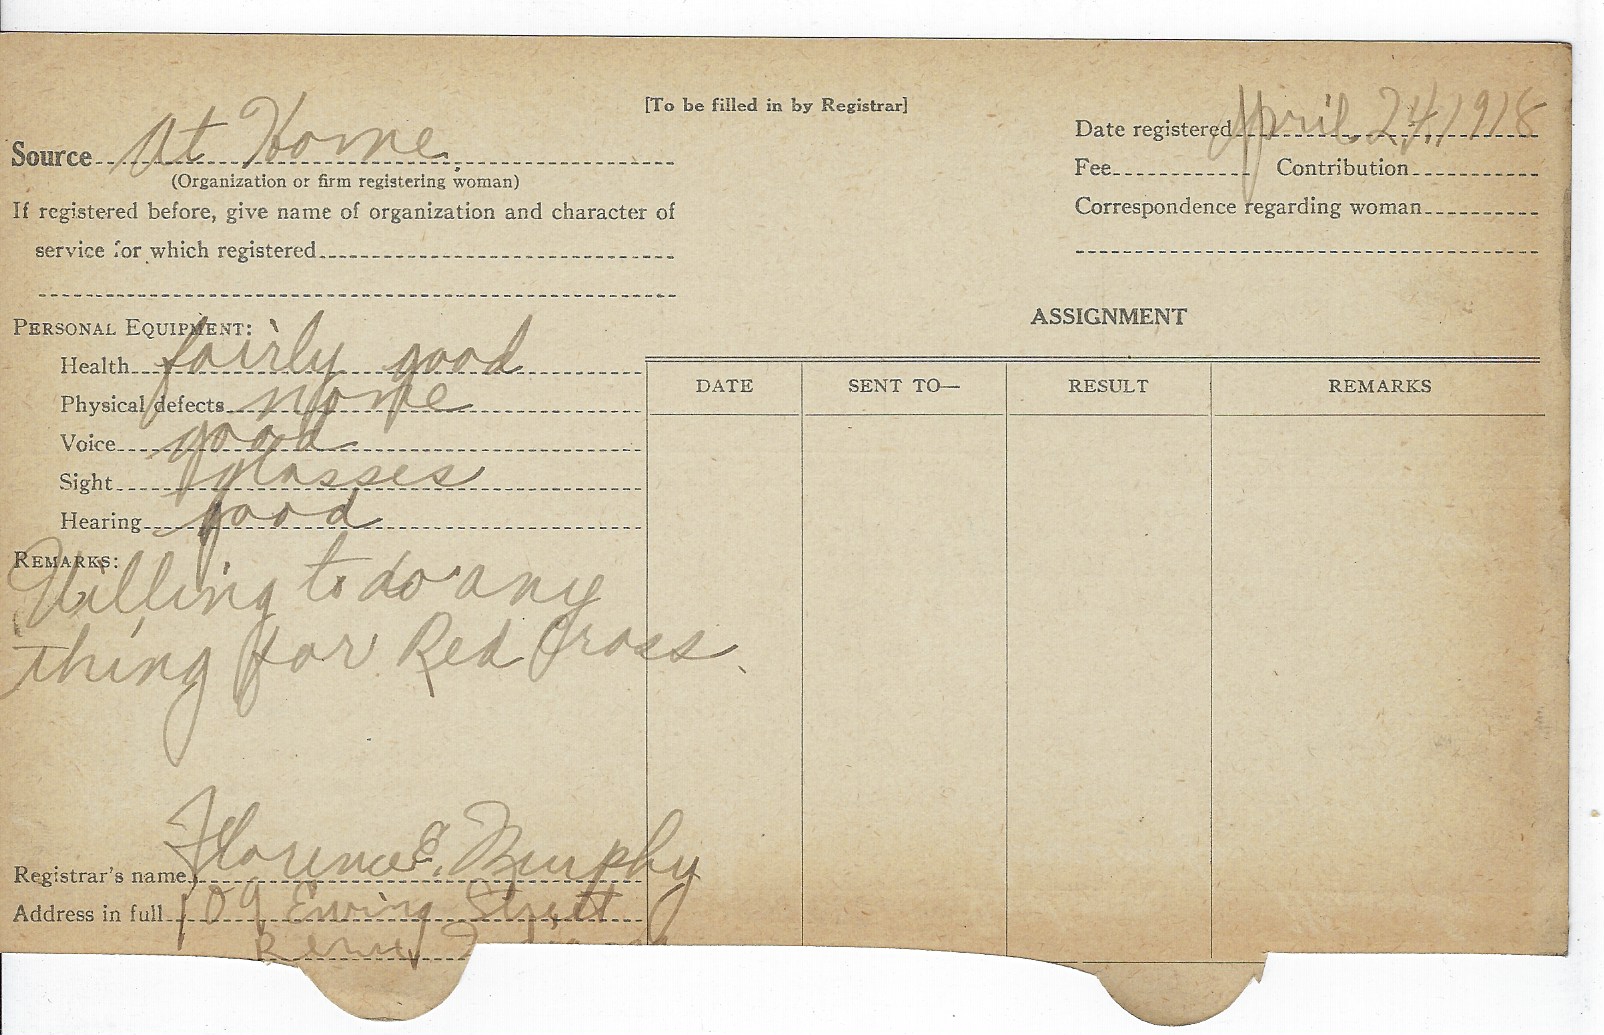 [To be filled in by Registrar]
Source At Home
(Organization or firm registering woman)
If registered before, give name of organization and character of
service for which registered
Date registered April 24, 1918
Fee Contribution
Correspondence regarding woman
PERSONAL EQUIPMENT:
Health fairly good
Physical defects None
Voice good
Sight glasses
Hearing good
REMARKS:
Willing to do any
thing for Red Cross
ASSIGNMENT
DATE SENT TO— RESULT REMARKS
Registrar's name Florence E. Murphy
Address in full 109 Ewing Street